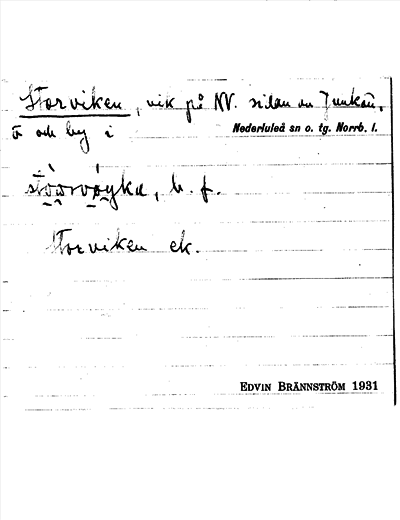 Storviken, vik på NV. sidan av Junkön,
ö och by i Nederluleå sn o. tg. Norrb. l.
b. f.
Storviken ek.
EDVIN BRÄNNSTRÖM 1931